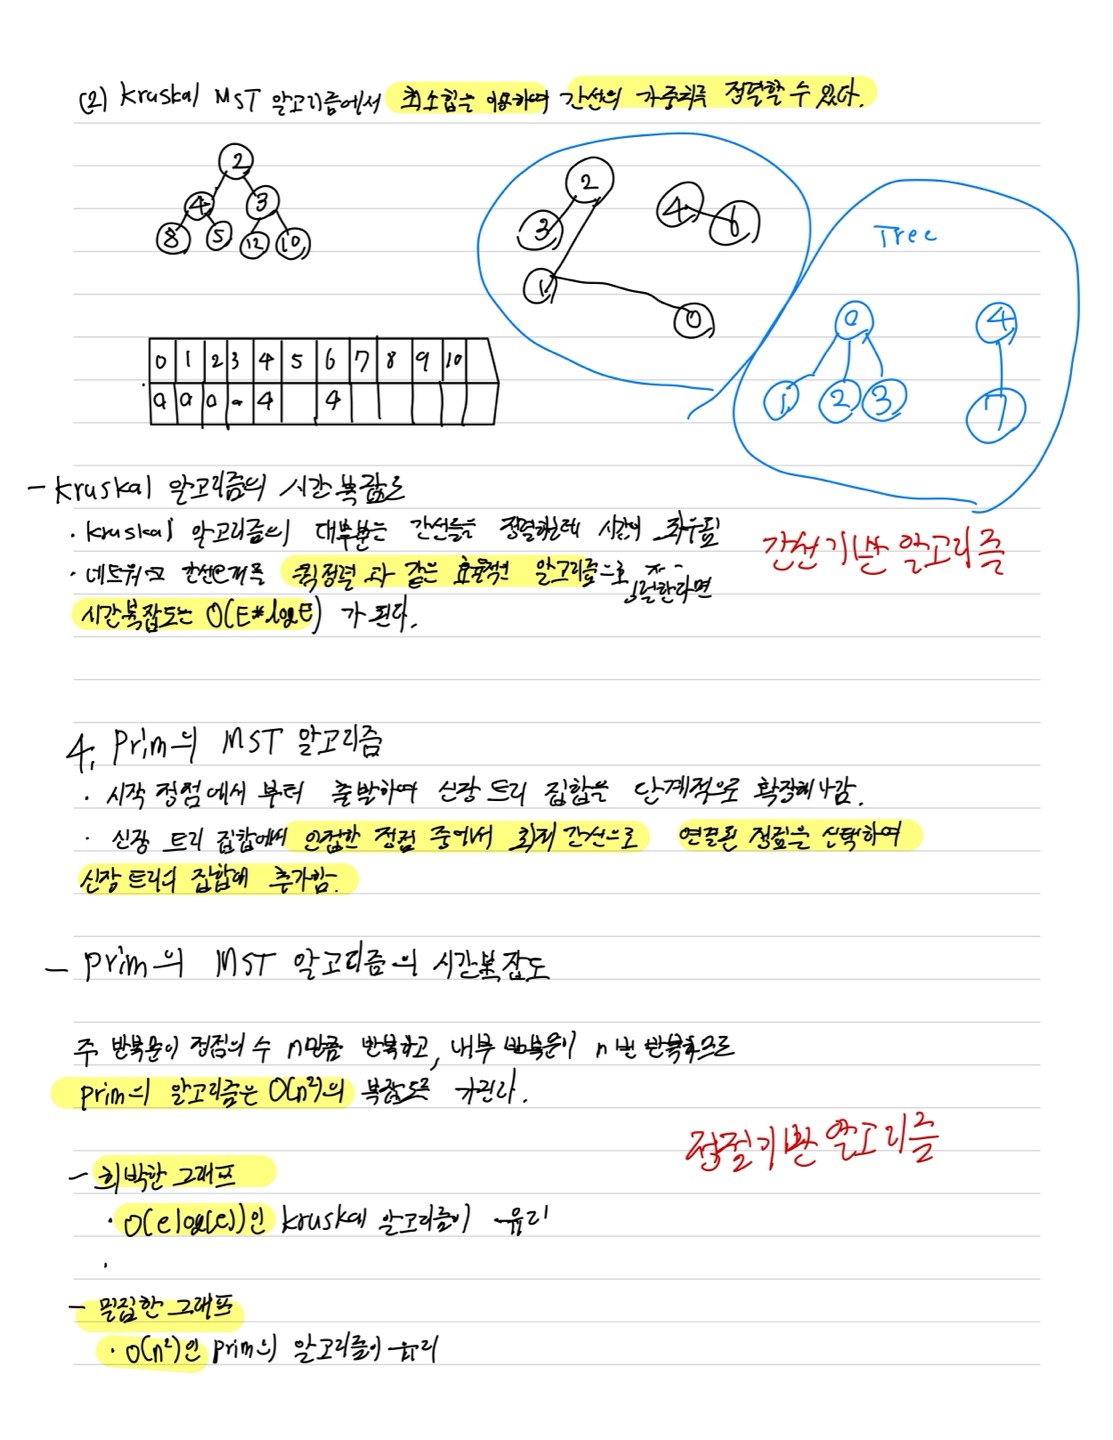 (2) Kruskal MST 알고리즘에서 최소힙을 이용하여 간선의 가중치를 정렬할 수 있다.
2
4 3
8 5 12 10
2
3
4 6
1
0
Tree
0 4
1 2 3 7
0 1 2 3 4 5 6 7 8 9 10
0 0 0 0 4 4
- Kruskal 알고리즘의 시간 복잡도
· Kruskal 알고리즘의 대부분은 간선들을 정렬하는데 시간이 좌우됨
간선기반 알고리즘
· 네트워크 간선 퀵정렬과 같은 효율적인 알고리즘으로 정렬한다면
시간복잡도는 O(E*logE) 가 된다.
4. Prim의 MST 알고리즘
· 시작 정점에서 부터 출발하여 신장 트리 집합을 단계적으로 확장해나감.
· 신장 트리 집합에서 인접한 정점 중에서 최저 간선으로 연결된 정점을 선택하여
신장 트리의 집합에 추가함.
- Prim의 MST 알고리즘의 시간복잡도
주 반복문이 정점의 수 n만큼 반복하고, 내부 반복문이 n번 반복하므로
Prim의 알고리즘은 O(n²)의 복잡도를 가진다.
정점기반 알고리즘
- 희박한 그래프
· O(elog(e))인 Kruskal 알고리즘이 유리
·
- 밀집한 그래프
· O(n²)인 Prim의 알고리즘이 유리